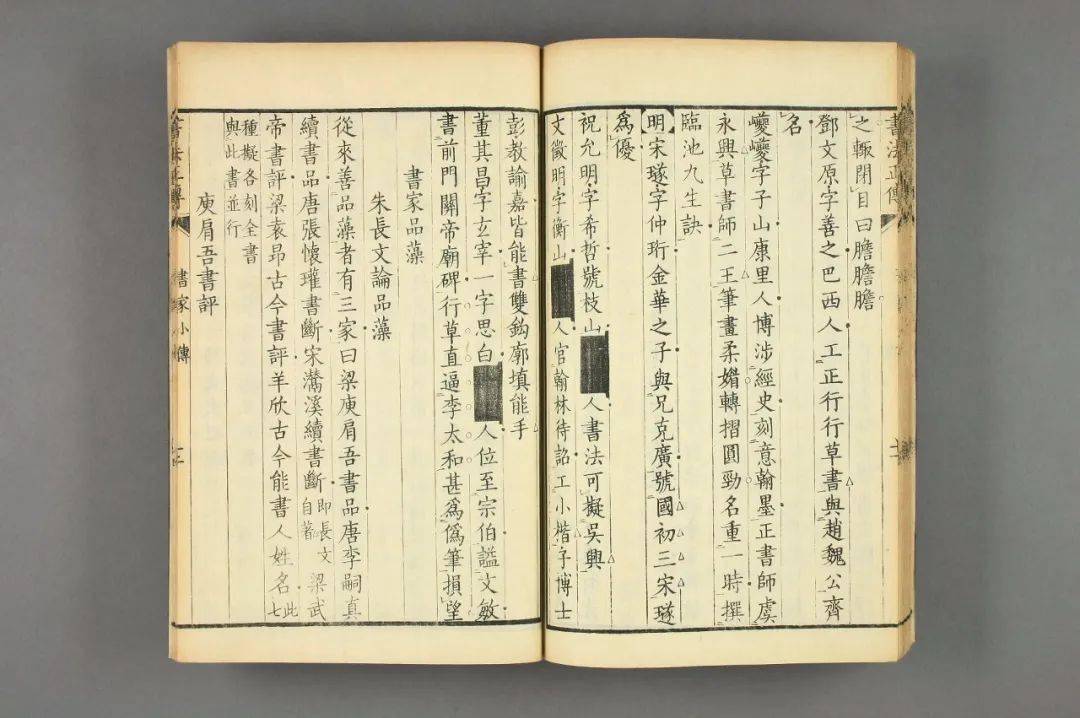 書法正傳
之輙閉目曰膽膽膽
鄧文原字善之巴西人工正行行草書與趙魏公齊
名
夔夔字子山康里人博涉經史刻意翰墨正書師虞
永興草書師二王筆畫柔媚轉摺圓勁名重一時撰
臨池九生訣
明宋璲字仲珩金華之子與兄克廣號國初三宋璲
爲優
祝允明字希哲號枝山人書法可擬吳興
文徵明字衡山人官翰林待詔工小楷子博士
彭教諭嘉皆能書雙鈎廓填能手
董其昌字玄宰一字思白人位至宗伯謚文敏
書前門關帝廟碑行草直逼李太和甚爲僞筆損望
書家品藻
朱長文論品藻
從來善品藻者有三家曰梁庾肩吾書品唐李嗣真
續書品唐張懷瓘書斷宋灊溪續書斷即長文自著梁武
帝書評梁袁昂古今書評羊欣古今能書人姓名此七
種擬各刻全書
與此書並行
庾肩吾書評
書家小傳